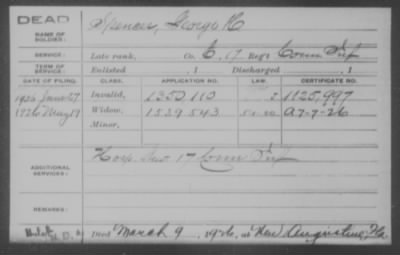 DEAD
NAME OF SOLDIER: Spencer, George H
SERVICE: Late rank, Co. G, 17 Reg't Conn Inf
TERM OF SERVICE: Enlisted , 1 Discharged , 1
DATE OF FILING. CLASS. APPLICATION NO. LAW. CERTIFICATE NO.
1906 27 Invalid, 1350 110 2 1125,997
1926 May 19 Widow, 1539 543 A-7-7-26
Minor,
ADDITIONAL SERVICES: 17 Conn Inf
REMARKS:
Died March 9, 1926, at New Augustine, Fla